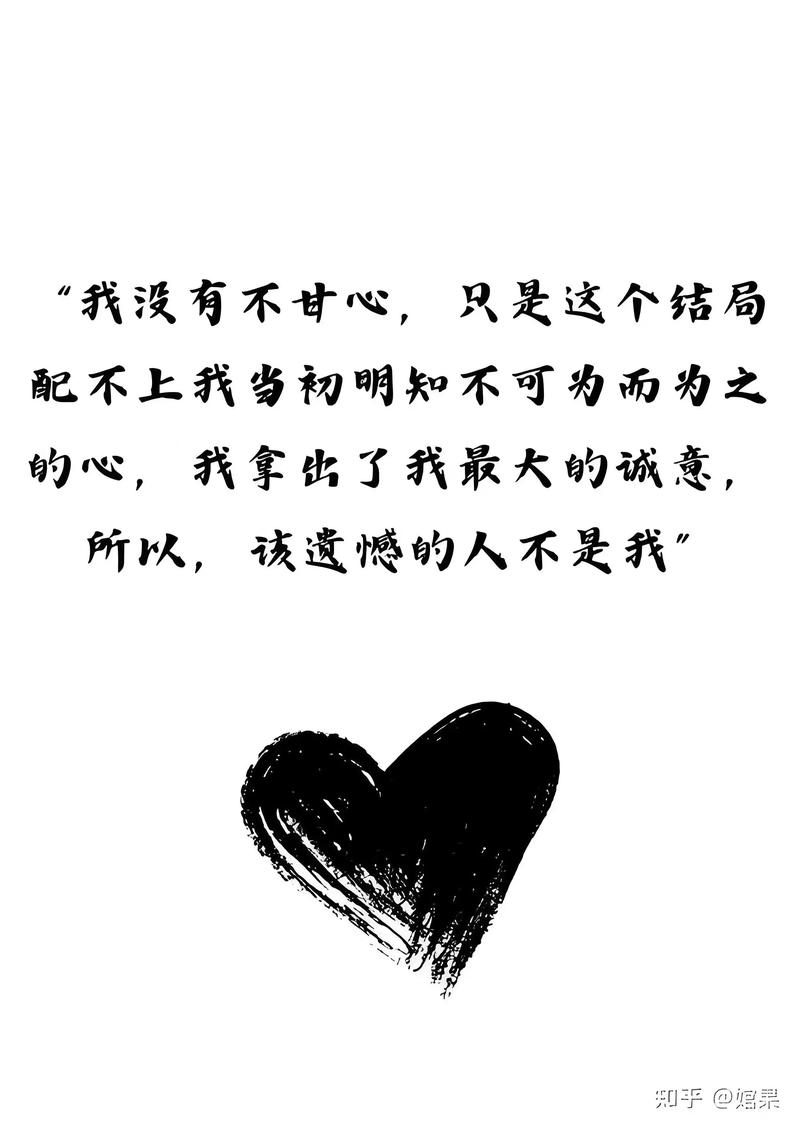 “我没有不甘心，只是这个结局
配不上我当初明知不可为而为之
的心，我拿出了我最大的诚意，
所以，该遗憾的人不是我”
知乎 @婠果